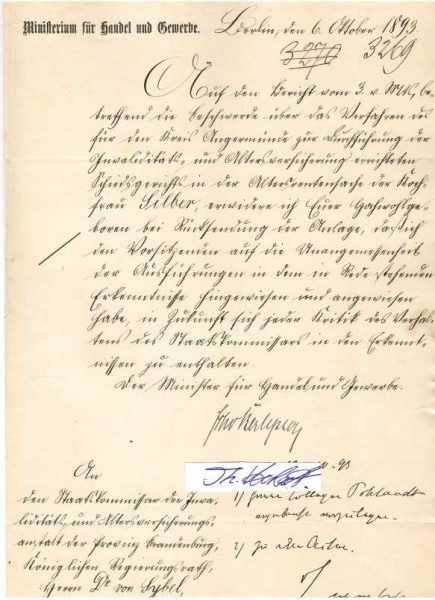 Ministerium für Handel und Gewerbe. Berlin, den 6. Oktober 1893
3270 3269
Auf den Bericht vom 3. v. Mts., be-
treffend die Beschwerde über das Verfahren des
für den Kreis Angermünde zur Durchführung der
Invaliditäts- und Altersversicherung errichteten
Schiedsgerichts in der Altersrentensache der Koch-
frau Silber, erwidere ich Euer Hochwohlge-
boren bei Rücksendung der Anlage, daß ich
den Vorsitzenden auf die Unangemessenheit
der Ausführungen in dem in Rede stehenden
Erkenntnisse hingewiesen und angewiesen
habe, in Zukunft sich jeder Kritik des Verhal-
tens des Staatskommissars in den Erkennt-
nissen zu enthalten.
Der Minister für Handel und Gewerbe.
An
den Staatskommissar der Inva-
liditäts und Altersversicherungs-
anstalt der Provinz Brandenburg,
Königlichen Regierungsrath,
Herrn Dr von Sybel,
1) Herrn Collegen
2) zu den Acten.